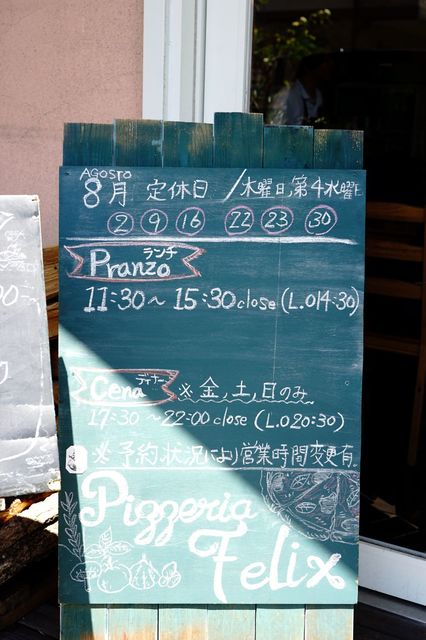 AGOSTO
8月 定休日 / 木曜日, 第4水曜日
2 9 16 22 23 30
ランチ
Pranzo
11:30〜15:30 close (L.O14:30)
ディナー
Cena ※金,土,日のみ
17:30〜22:00 close (L.O20:30)
※予約状況により営業時間変更有.
Pizzeria
Felix